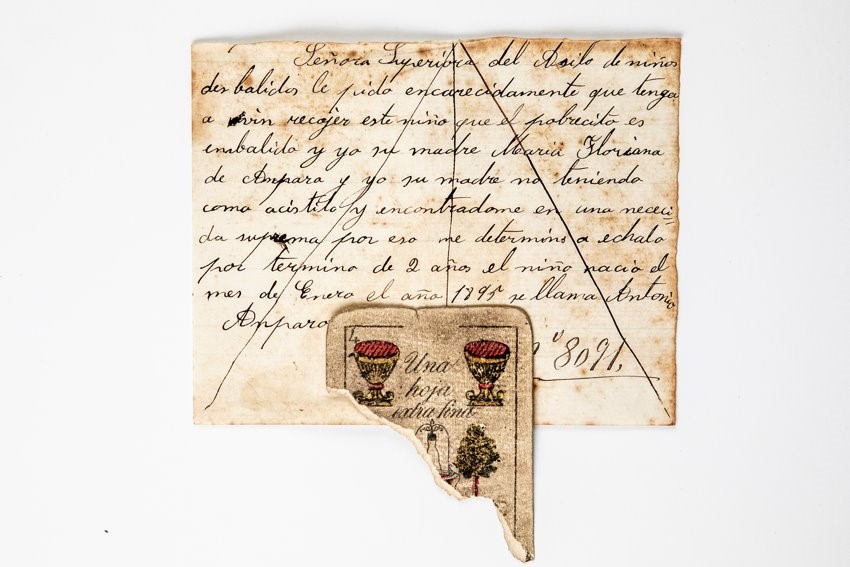 Señora Superiora del Asilo de niños
desbalidos le pido encarecidamente que tenga
a vin recojer este niño que el pobrecito es
imbalido y yo su madre Maria Floriana
de Anpara y yo su madre no teniendo
como acistilo y encontradome en una nececi-
da suprema por eso me determino a echalo
por termino de 2 años el niño nacio el
mes de Enero el año 1895 se llama Antonio
Anparo
8091,
4
Una
hoja
extra fina